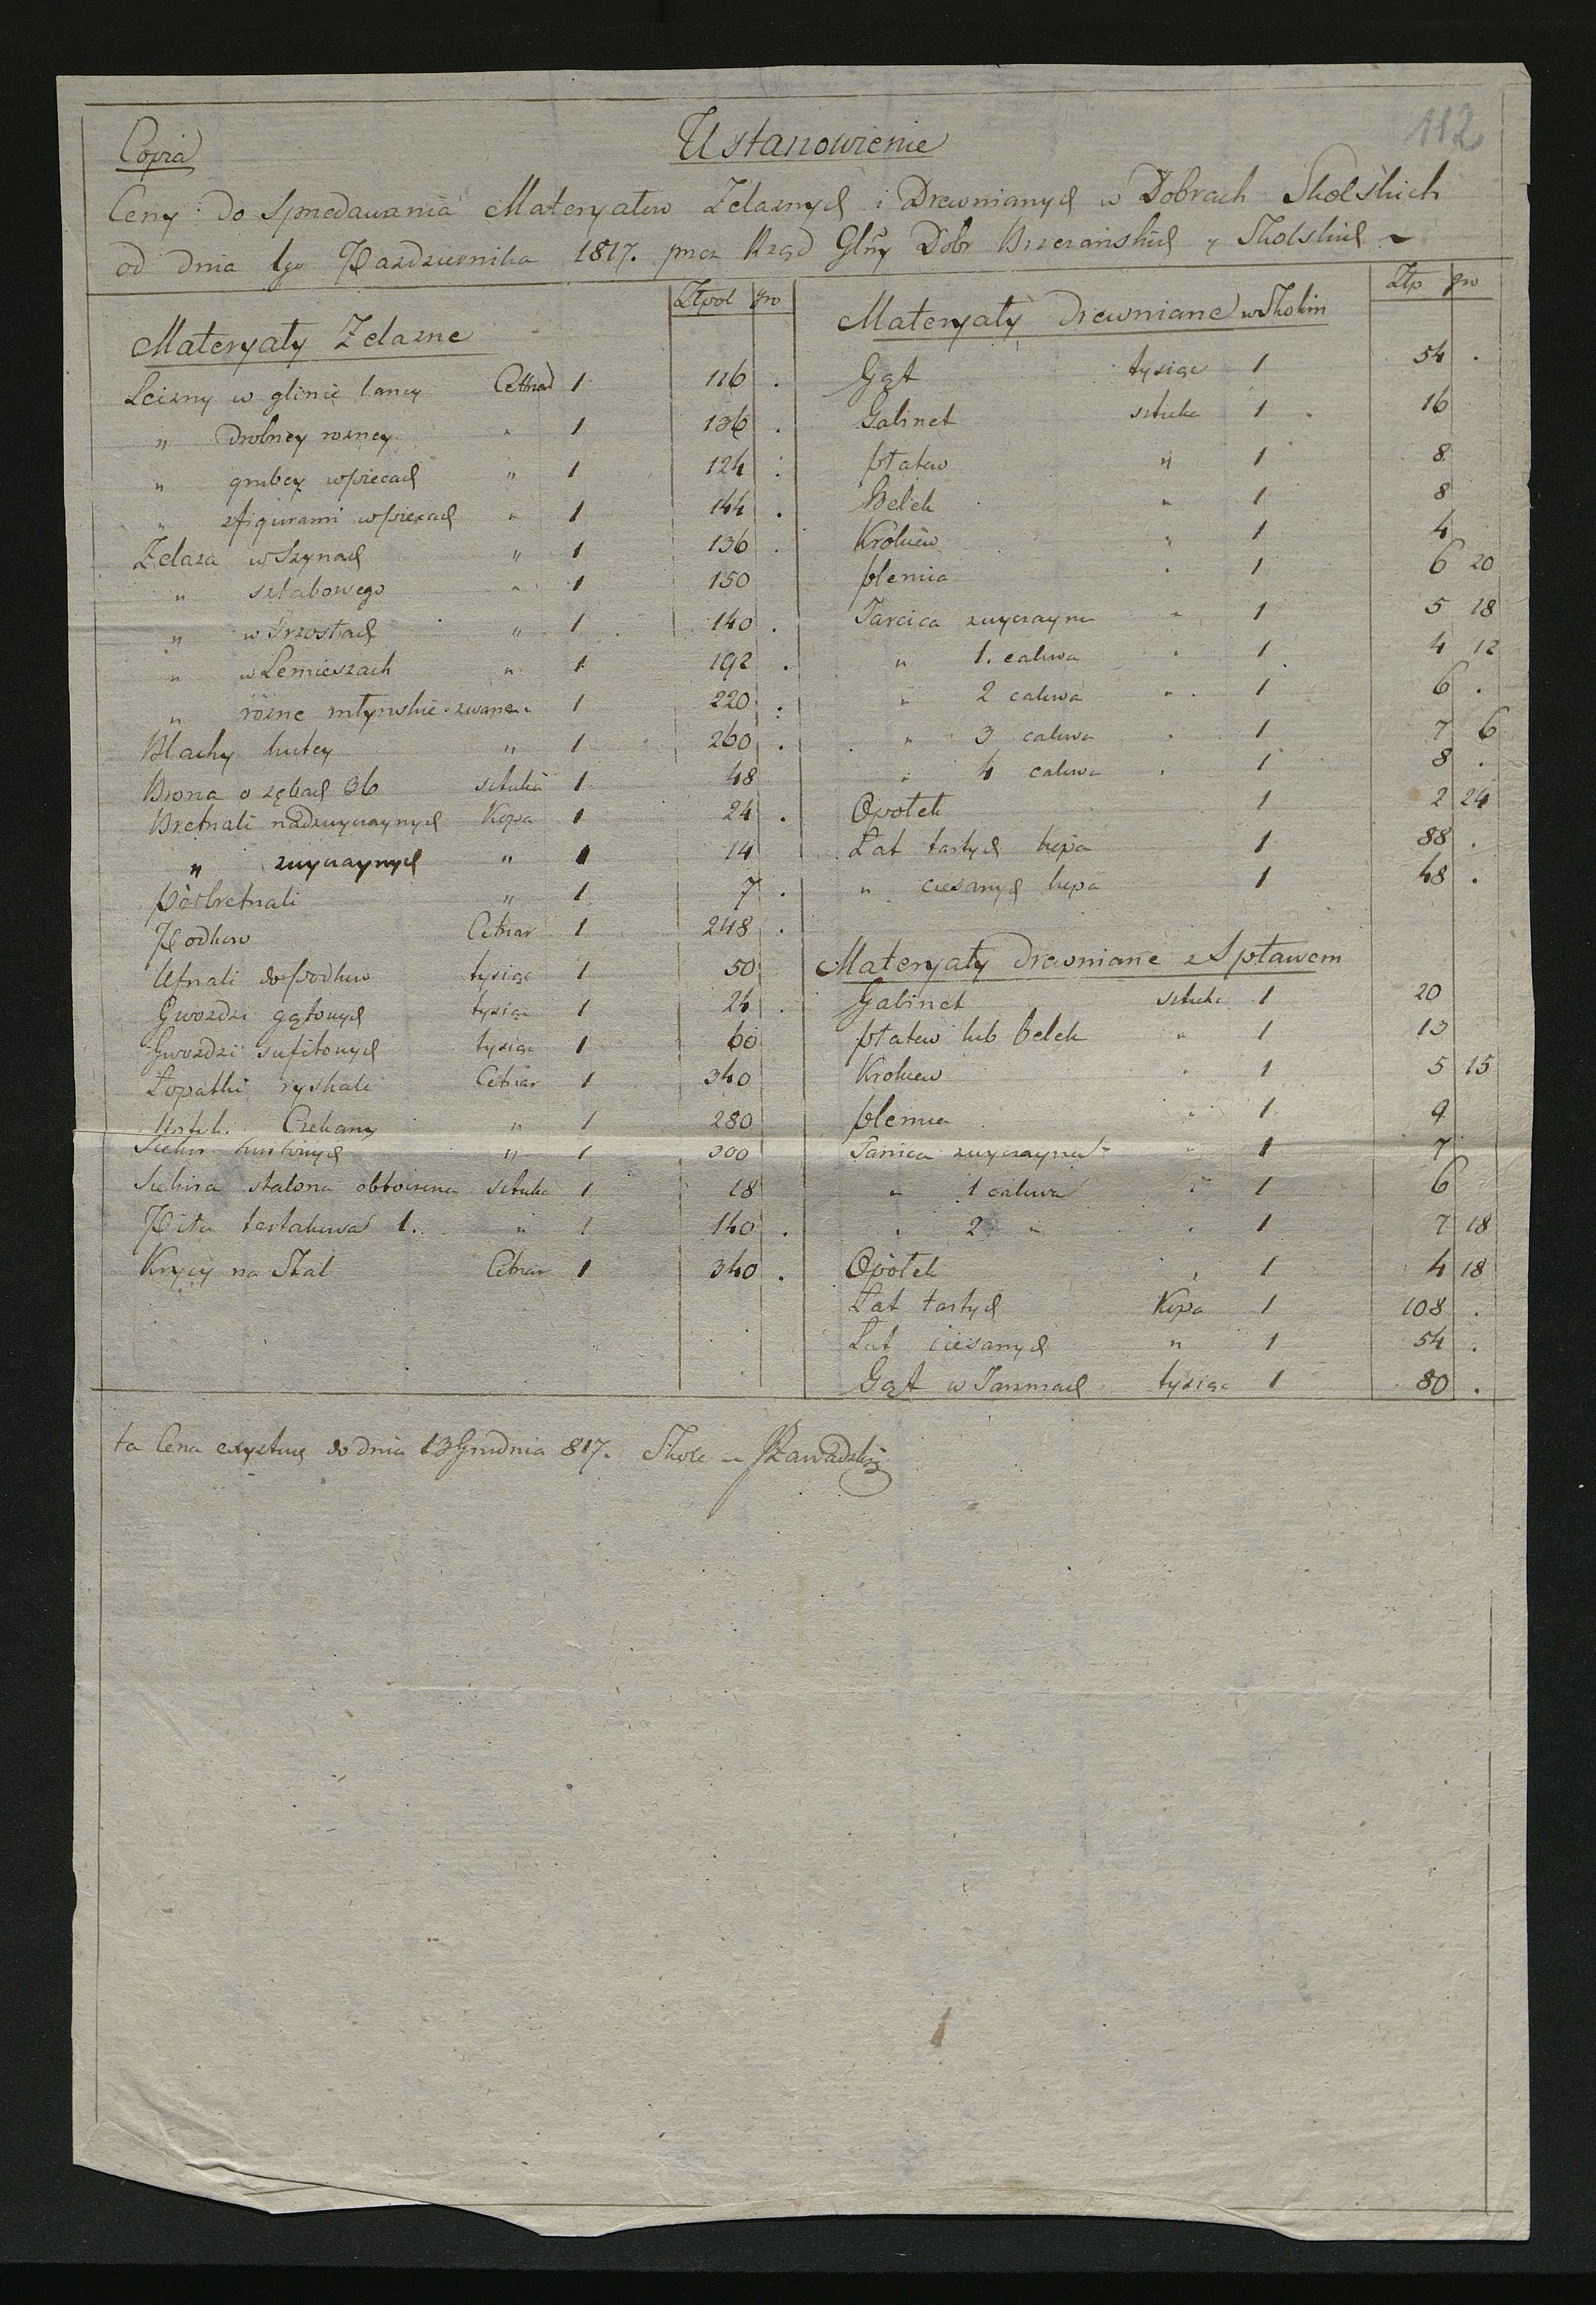 112
Copia
Ustanowienie
Ceny do Sprzedawania Materyałow Zelaznych i Drewnianych w Dobrach Skolskich
od dnia 1go Pazdziernika 1817. przez Rząd Głny Dobr Brzezańskich y Skolskich
Złpol gro
Materyały Zelazne
Leizny w glinie laney Cetnar 1 116 .
" drobney rozney " 1 136 .
" grubey w piecach " 1 124 :
" z figurami w piecach " 1 144 .
Zelaza w Szynach " 1 136 .
" sztabowego " 1 150
" w Trzosłach " 1 140 .
" w Lemieszach " 1 192 .
" różne młynskie zwane " 1 220 :
Blachy kutey " 1 260 .
Brona o zębach 36 sztuka 1 48
Bretnali nadzwyczaynych Kopa 1 24 .
" zwyczaynych " 1 14
półbretnali " 1 7 .
Podkow Cetnar 1 248 .
Ufnali do podkow tysiąc 1 50
Gwozdzi gątowych tysiąc 1 24 .
Gwozdzi sufitowych tysiąc 1 60
Łopatki ryskale Cetnar 1 340
Czekany " 1 280
" 1 300
Siekira stalona obtoczona sztuka 1 18
Piła tartakowa 1. " 1 140 .
Krycy na Stal Cetnar 1 340 .
Złp gro
Materyały drewniane w Skolim
Gąt tysiąc 1 54 .
Gabinet sztuka 1 16
płatew " 1 8
Belek " 1 8
Krokiew " 1 4
plenica " 1 6 20
Tarcica zwyczayna " 1 5 18
" 1. calowa " 1 4 12
" 2 calowa " 1 6 .
" 3 calowa " 1 7 6
" 4 calowa " 1 8 .
Opołek 1 2 24
Łat tartych kopa 1 88 .
" ciesanych kopa 1 48 .
Materyały drewniane z Spławem
Gabinet sztuka 1 20
płatew lub belek " 1 13
Krokiew " 1 5 15
plenica " 1 9
Tarcica zwyczayna " 1 7
" 1 calowa " 1 6
" 2 " " 1 7 18
Opołek " 1 4 18
Łat tartych Kopa 1 108 .
Łat ciesanych " 1 54 .
Gąt w Tarzmach tysiąc 1 80 .
ta Cena exystuię do dnia 13 Grudnia 817. Skole